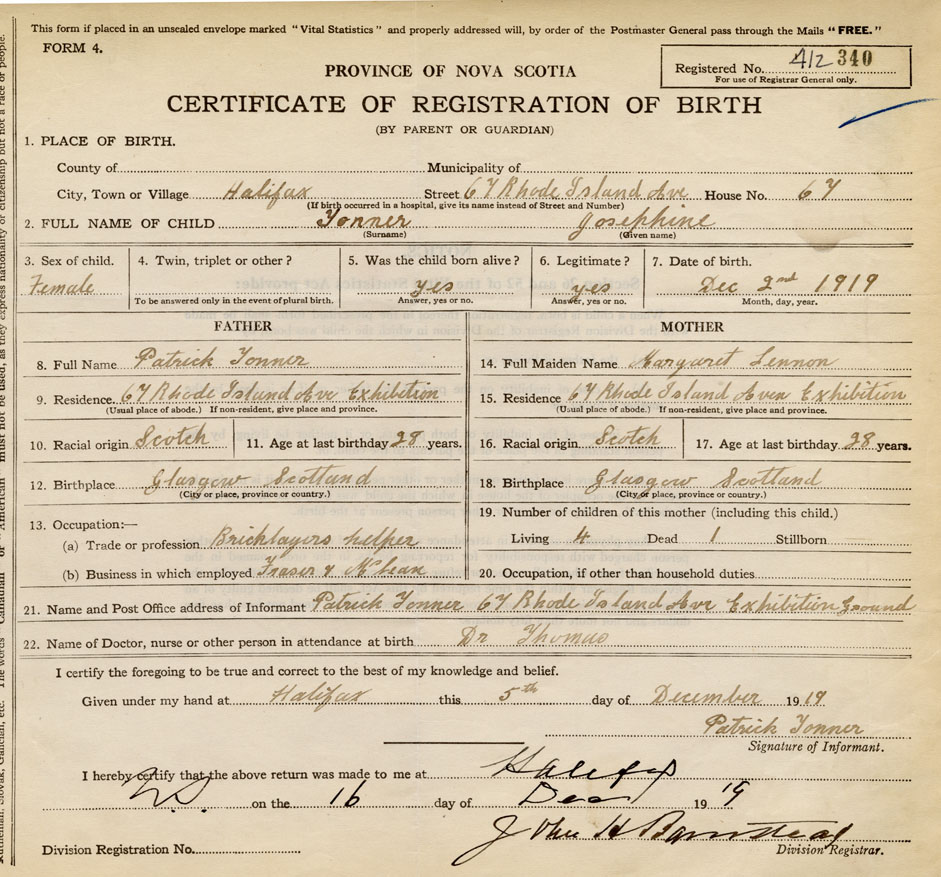 This form if placed in an unsealed envelope marked "Vital Statistics" and properly addressed will, by order of the Postmaster General pass through the Mails "FREE."
FORM 4.
Registered No. 412 340
For use of Registrar General only.
PROVINCE OF NOVA SCOTIA
CERTIFICATE OF REGISTRATION OF BIRTH
(BY PARENT OR GUARDIAN)
1. PLACE OF BIRTH.
County of Municipality of
City, Town or Village Halifax Street 67 Rhode Island Ave House No. 67
(If birth occurred in a hospital, give its name instead of Street and Number)
2. FULL NAME OF CHILD Tonner Josephine
(Surname) (Given name)
3. Sex of child. 4. Twin, triplet or other? 5. Was the child born alive? 6. Legitimate? 7. Date of birth.
Female yes yes Dec 2nd 1919
To be answered only in the event of plural birth. Answer, yes or no. Answer, yes or no. Month, day, year.
FATHER MOTHER
8. Full Name Patrick Tonner 14. Full Maiden Name Margaret Lennon
9. Residence. 67 Rhode Island Ave Exhibition 15. Residence 67 Rhode Island Aven Exhibition
(Usual place of abode.) If non-resident, give place and province. (Usual place of abode.) If non-resident, give place and province.
10. Racial origin Scotch 11. Age at last birthday 28 years. 16. Racial origin Scotch 17. Age at last birthday 28 years.
12. Birthplace Glasgow Scotland 18. Birthplace Glasgow Scotland
(City or place, province or country.) (City or place, province or country.)
19. Number of children of this mother (including this child.)
13. Occupation:—
(a) Trade or profession Bricklayers helper Living 4 Dead 1 Stillborn
(b) Business in which employed Fraser & McLean 20. Occupation, if other than household duties
21. Name and Post Office address of Informant Patrick Tonner 67 Rhode Island Ave Exhibition Ground
22. Name of Doctor, nurse or other person in attendance at birth Dr Thomas
I certify the foregoing to be true and correct to the best of my knowledge and belief.
Given under my hand at Halifax this 5th day of December 1919
Patrick Tonner
Signature of Informant.
I hereby certify that the above return was made to me at Halifax
on the 16 day of Dec 1919
John H Barnstead
Division Registrar.
Division Registration No.